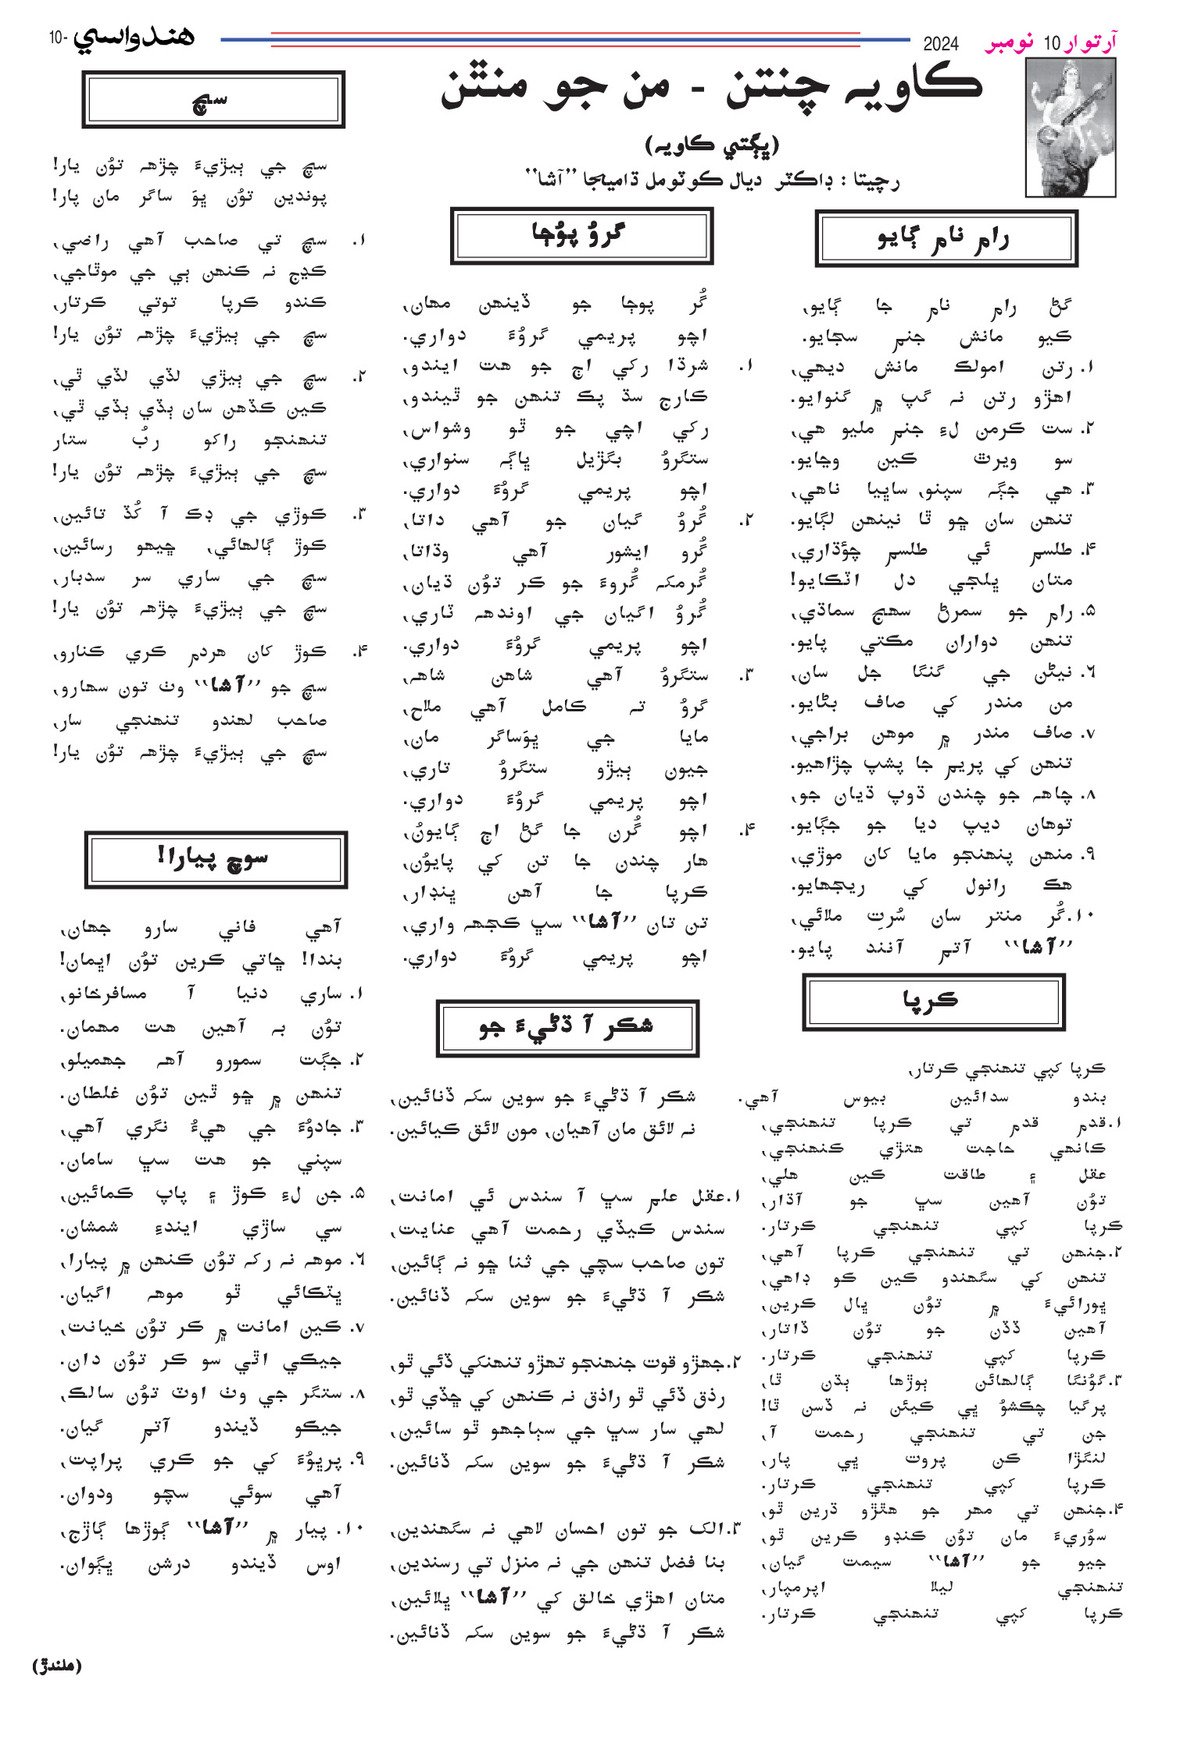 آرتوار 10 نومبر 2024
هندواسي -10
ڪاويہ چنتن - من جو منٿن
(ڀڳتي ڪاويہ)
رچيتا : ڊاڪٽر ديال ڪوٽومل ڌاميجا ”آشا“
رام نام ڳايو
گڻ رام نام جا ڳايو،
ڪيو مانش جنم سجايو.
۱. رتن امولڪ مانش ديهي،
اهڙو رتن نہ گپ ۾ گنوايو.
۲. ست ڪرمن لءِ جنم مليو هي،
سو ويرٿ ڪين وڃايو.
۳. هي جڳہ سپنو، ساڀيا ناهي،
تنهن سان ڇو ٿا نينهن لڳايو.
۴. طلسم ئي طلسم چؤڌاري،
متان ڀلجي دل اٽڪايو!
۵. رام جو سمرڻ سهج سماڌي،
تنهن دواران مڪتي پايو.
۶. نيڻن جي گنگا جل سان،
من مندر کي صاف بڻايو.
۷. صاف مندر ۾ موهن براجي،
تنهن کي پريم جا پشپ چڙاهيو.
۸. چاهہ جو چندن ڌوپ ڌيان جو،
توهان ديپ ديا جو جڳايو.
۹. منهن پنهنجو مايا کان موڙي،
هڪ رانول کي ريجهايو.
۱۰. گُر منتر سان سُرتِ ملائي،
”آشا“ آتم آنند پايو.
ڪرپا
ڪرپا کپي تنهنجي ڪرتار،
بندو سدائين بيوس آهي.
۱. قدم قدم تي ڪرپا تنهنجي،
ڪانهي حاجت هتڙي ڪنهنجي،
عقل ۽ طاقت ڪين هلي،
توُن آهين سڀ جو آڌار،
ڪرپا کپي تنهنجي ڪرتار.
۲. جنهن تي تنهنجي ڪرپا آهي،
تنهن کي سگهندو ڪين ڪو ڊاهي،
ڀورائيءَ ۾ توُن ڀال ڪرين،
آهين ڏڏن جو توُن ڏاتار،
ڪرپا کپي تنهنجي ڪرتار.
۳. گوُنگا ڳالهائن ٻوڙها ٻڌن ٿا،
پرگيا چڪشوُ ڀي ڪيئن نہ ڏسن ٿا!
جن تي تنهنجي رحمت آ،
لنگڙا ڪن پروت ڀي پار،
ڪرپا کپي تنهنجي ڪرتار.
۴. جنهن تي مهر جو هٿڙو ڌرين ٿو،
سوُريءَ مان توُن ڪنڊو ڪرين ٿو،
جيو جو ”آشا“ سيمت گيان،
تنهنجي ليلا اپرمپار،
ڪرپا کپي تنهنجي ڪرتار.
گروُ پوُڄا
گُر پوڄا جو ڏينهن مهان،
اچو پريمي گروُءَ دواري.
۱. شرڌا رکي اڄ جو هت ايندو،
ڪارج سڌ پڪ تنهن جو ٿيندو،
رکي اچي جو ٿو وشواس،
ستگروُ بگڙيل ڀاڳہ سنواري،
اچو پريمي گروُءَ دواري.
۲. گُروُ گيان جو آهي داتا،
گُرو ايشور آهي وڌاتا،
گُرمکہ گُروءَ جو ڪر توُن ڌيان،
گُروُ اگيان جي اوندهہ ٽاري،
اچو پريمي گروُءَ دواري.
۳. ستگروُ آهي شاهن شاهہ،
گروُ تہ ڪامل آهي ملاح،
مايا جي ڀوَساگر مان،
جيون ٻيڙو ستگروُ تاري،
اچو پريمي گروُءَ دواري.
۴. اچو گُرن جا گڻ اڄ ڳايوُن،
هار چندن جا تن کي پايوُن،
ڪرپا جا آهن ڀنڊار،
تن تان ”آشا“ سڀ ڪجهہ واري،
اچو پريمي گروُءَ دواري.
شڪر آ ڌڻيءَ جو
شڪر آ ڌڻيءَ جو سوين سکہ ڏنائين،
نہ لائق مان آهيان، مون لائق ڪيائين.
۱. عقل علم سڀ آ سندس ئي امانت،
سندس ڪيڏي رحمت آهي عنايت،
تون صاحب سچي جي ثنا ڇو نہ ڳائين،
شڪر آ ڌڻيءَ جو سوين سکہ ڏنائين.
۲. جهڙو قوت جنهنجو تهڙو تنهنکي ڏئي ٿو،
رذق ڏئي ٿو راذق نہ ڪنهن کي ڇڏي ٿو،
لهي سار سڀ جي سٻاجهو ٿو سائين،
شڪر آ ڌڻيءَ جو سوين سکہ ڏنائين.
۳. الک جو تون احسان لاهي نہ سگهندين،
بنا فضل تنهن جي نہ منزل تي رسندين،
متان اهڙي خالق کي ”آشا“ ڀلائين،
شڪر آ ڌڻيءَ جو سوين سکہ ڏنائين.
سچ
سچ جي ٻيڙيءَ چڙهہ توُن يار!
پوندين توُن ڀوَ ساگر مان پار!
۱. سچ تي صاحب آهي راضي،
ڪڍج نہ ڪنهن ٻي جي موٿاجي،
ڪندو ڪرپا توتي ڪرتار،
سچ جي ٻيڙيءَ چڙهہ توُن يار!
۲. سچ جي ٻيڙي لڏي لڏي ٿي،
ڪين ڪڏهن سان ٻڏي ٻڏي ٿي،
تنهنجو راکو ربُ ستار
سچ جي ٻيڙيءَ چڙهہ توُن يار!
۳. ڪوڙي جي ڊڪ آ کُڏ تائين،
ڪوڙ ڳالهائي، ڇيهو رسائين،
سچ جي ساري سر سدٻار،
سچ جي ٻيڙيءَ چڙهہ توُن يار!
۴. ڪوڙ کان هردم ڪري ڪنارو،
سچ جو ”آشا“ وٺ تون سهارو،
صاحب لهندو تنهنجي سار،
سچ جي ٻيڙيءَ چڙهہ توُن يار!
سوچ پيارا!
آهي فاني سارو جهان،
بندا! ڇاتي ڪرين توُن اڀمان!
۱. ساري دنيا آ مسافرخانو،
توُن بہ آهين هت مهمان.
۲. جڳت سمورو آهہ جهميلو،
تنهن ۾ ڇو ٿين توُن غلطان.
۳. جادوُءَ جي هيءُ نگري آهي،
سپني جو هت سڀ سامان.
۵. جن لءِ ڪوڙ ۽ پاپ ڪمائين،
سي ساڙي ايندءِ شمشان.
۶. موهہ نہ رکہ توُن ڪنهن ۾ پيارا،
ڀٽڪائي ٿو موهہ اگيان.
۷. ڪين امانت ۾ ڪر توُن خيانت،
جيڪي اٿي سو ڪر توُن دان.
۸. ستگر جي وٺ اوٽ توُن سالڪ،
جيڪو ڏيندو آتم گيان.
۹. پرڀوُءَ کي جو ڪري پراپت،
آهي سوئي سچو ودوان.
۱۰. پيار ۾ ”آشا“ ڳوڙها ڳاڙج،
اوس ڏيندو درشن ڀڳوان.
(ملندڙ)